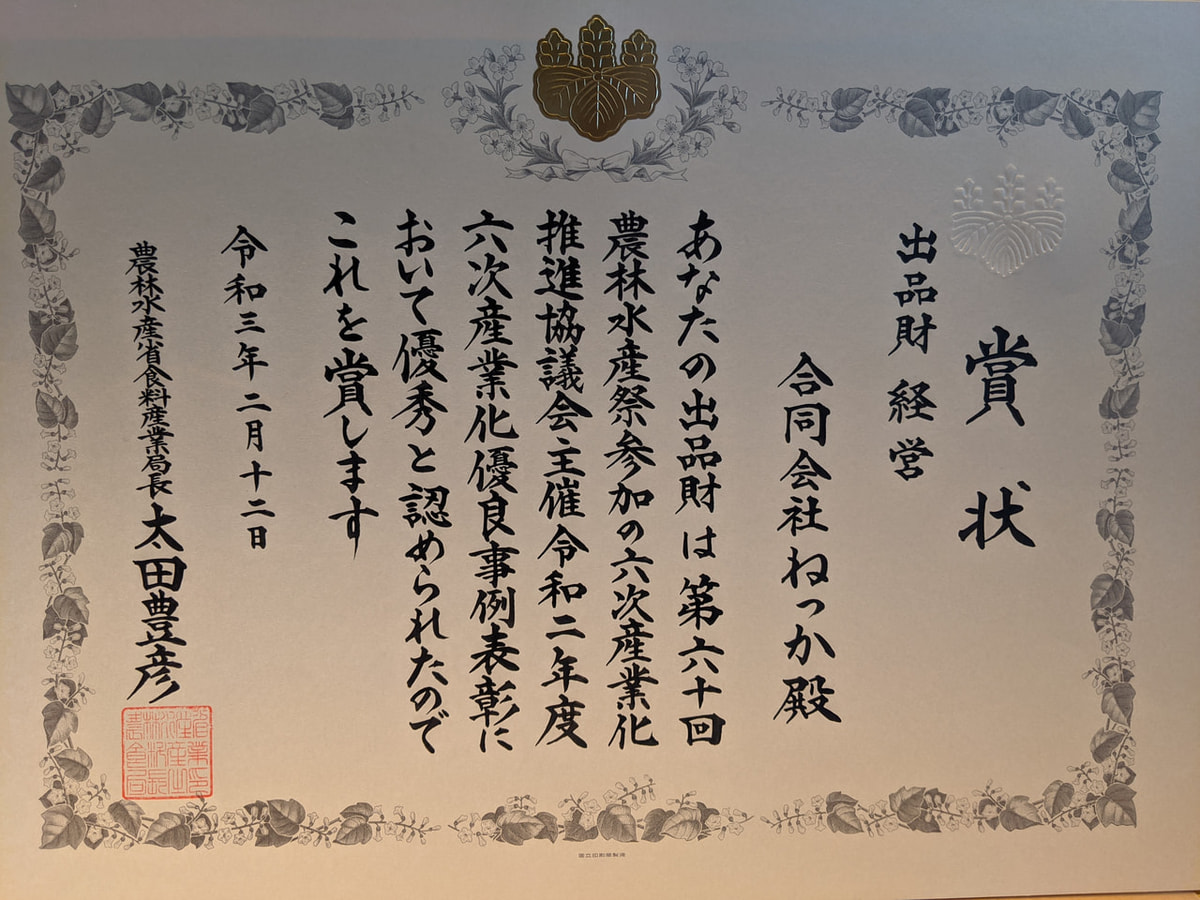 賞状
出品財 経営
合同会社ねっか殿
あなたの出品財は第六十回
農林水産祭参加の六次産業化
推進協議会主催令和二年度
六次産業化優良事例表彰に
おいて優秀と認められたので
これを賞します
令和三年二月十二日
農林水産省食料産業局長 太田豊彦
国立印刷局製造